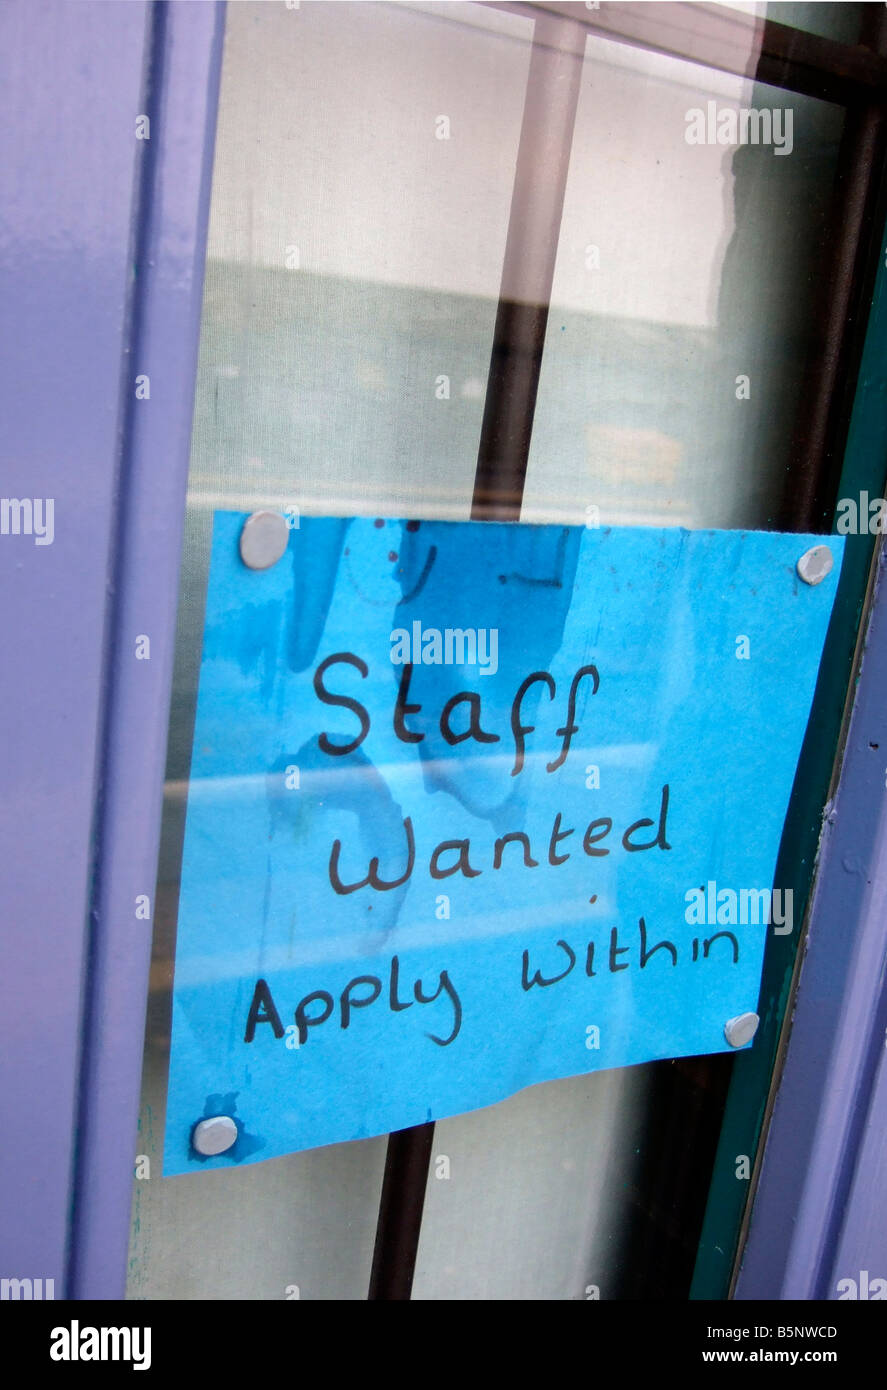 alamy
alamy
Staff
Wanted
Apply Within
alamy
alamy
Image ID: B5NWCD
www.alamy.com